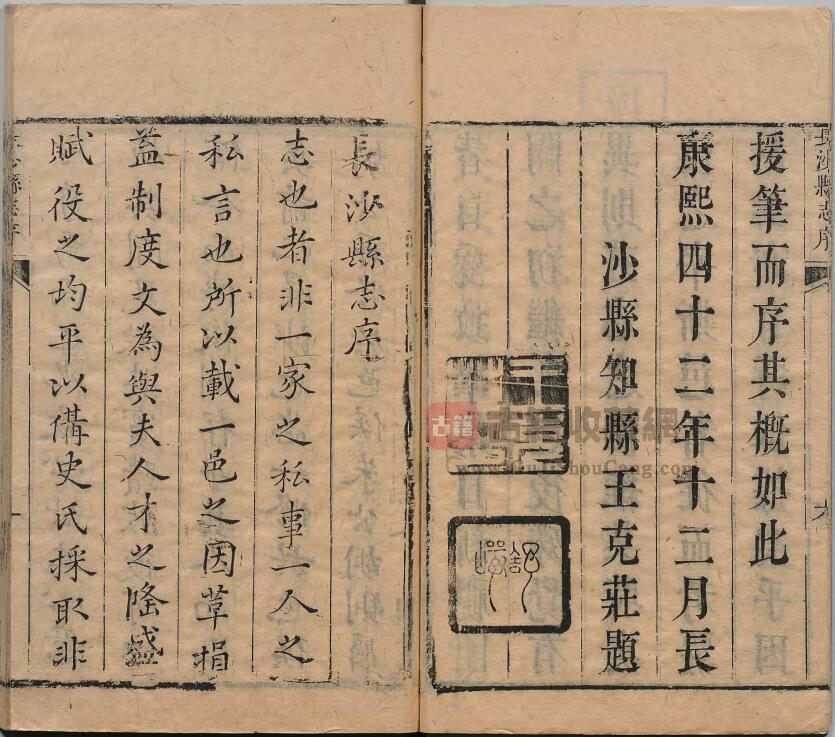 長沙縣志序
援筆而序其概如此
康熙四十二年十二月長
沙縣知縣王克莊題
古籍
收
網
長沙縣志序
志也者非一家之私事一人之
私言也所以載一邑之因革損
益制度文為與夫人才之隆盛
賦役之均平以備史氏採取非
縣志序
一